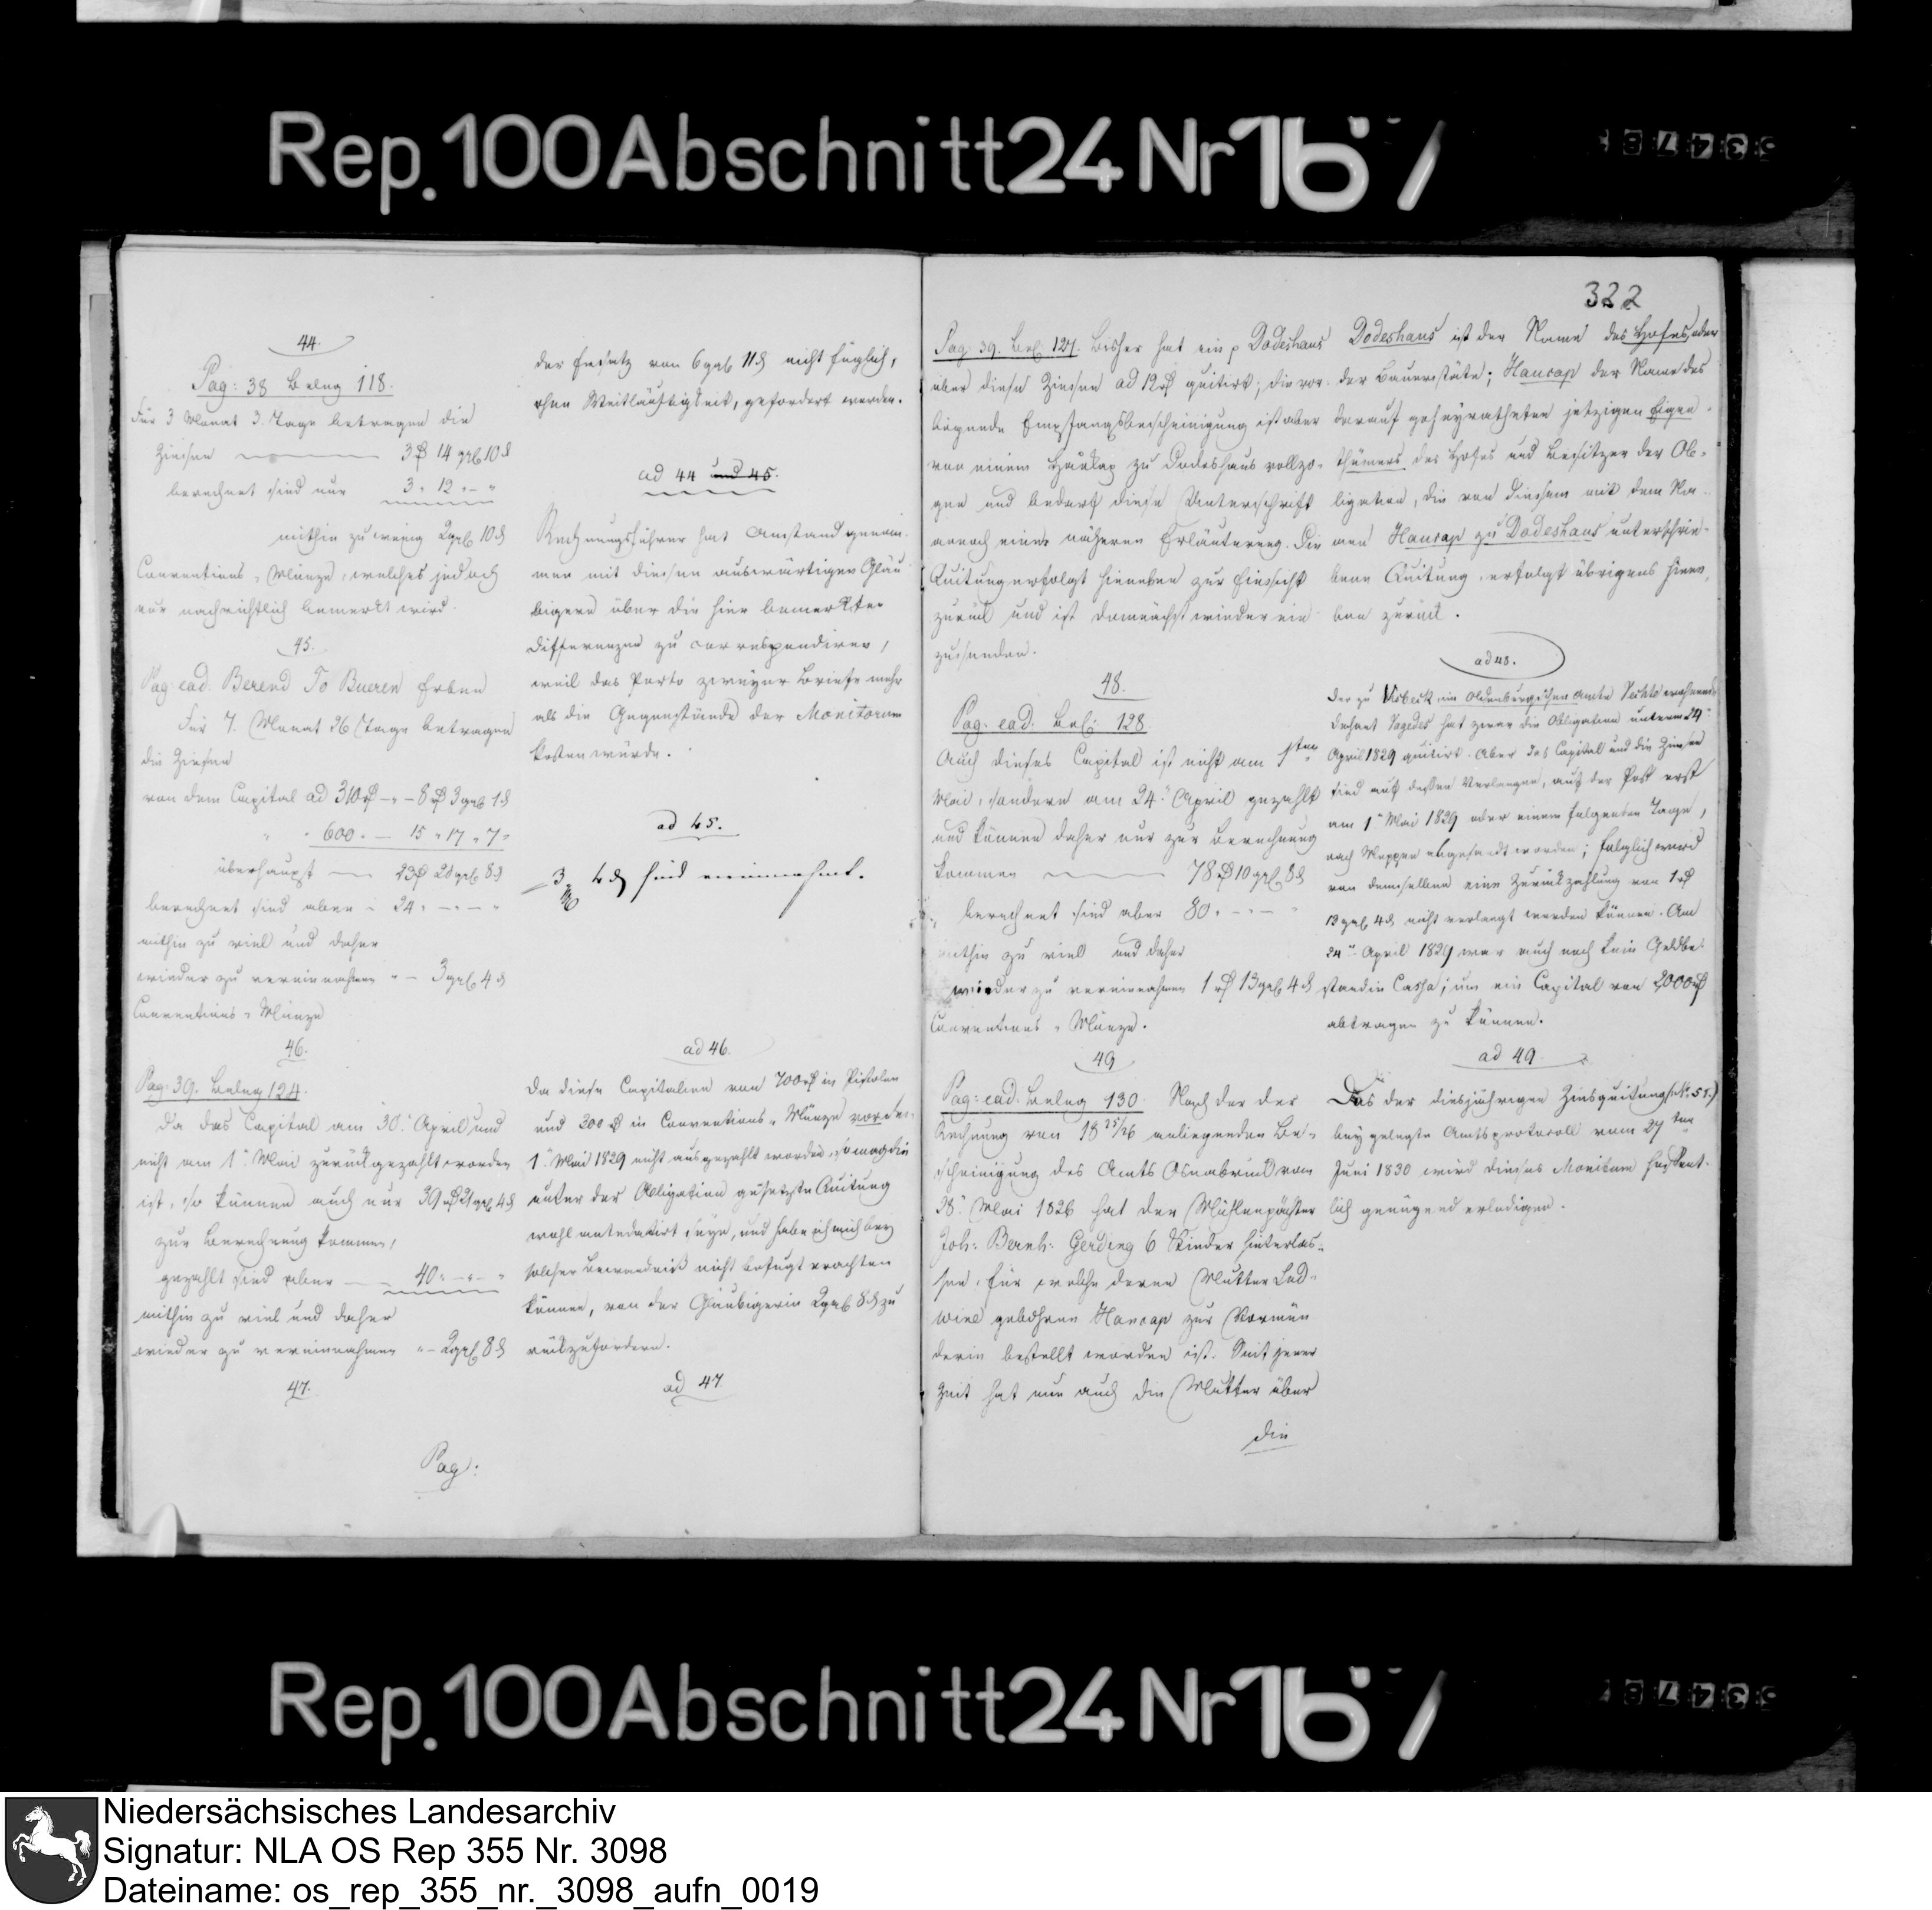 Rep. 100 Abschnitt 24 Nr 167
44.
Pag: 38 Beleg 118.
Für 3 Monat 3. Tage betragen die
Zinsen 3 ₰ 14 ggl 10 ₰
berechnet sind nur 3 " 12 " – "
mithin zu wenig 2 ggl 10 ₰
Conventions-Münze, welches jedoch
nur nachrichtlich bemerkt wird.
45.
Pag: ead. Berend To Bueren Erben
Für 7. Monat 26 Tage betragen
die Zinsen
von dem Capital ad 310 ₰ – " – 8 ₰ 3 ggl 1 ₰
" " 600 " — 15 " 17 " 7 "
überhaupt — 23 ₰ 20 ggl 8 ₰
berechnet sind aber – 24 " – " – "
mithin zu viel und daher
wieder zu vereinnahmen " – 3 ggl 4 ₰
Conventions-Münze
46.
Pag: 39. Beleg 124.
Da das Capital am 30. April und
nicht am 1. Mai zurückgezahlt worden
ist, so können auch nur 39 ₰ 21 ggl 4 ₰
zur Berechnung kommen,
gezahlt sind aber — 40 " – " – "
mithin zu viel und daher
wieder zu vereinnahmen " – 2 ggl 8 ₰
47.
Pag:
der Ersatz von 6 ggl 11 ₰ nicht füglich,
ohne Weitläuftigkeit, gefordert werden.
ad 44 und 45.
Rechnungsführer hat Anstand genom-
men mit diesen auswärtigen Gläu-
bigern über die hier bemerkten
Differenzen zu correspondiren,
weil das Porto zweyer Briefe mehr
als die Gegenstände der Monitorum
kosten würde.
ad 45.
3 4 ₰ sind vereinnahmt.
ad 46.
Da diese Capitalien von 700 ₰ in Pistolen
und 300 ₰ in Conventions-Münze vor dem
1. Mai 1829 nicht ausgezahlt worden, so mag die
unter der Obligation gesetzte Quitung
wohl antedatirt seyn, und habe ich mich bey
solcher Bewandniß nicht befugt erachten
können, von der Gläubigerin 2 ggl 8 ₰ zu
rückzufordern.
ad 47.
322
Pag: 39. Bel: 127. Bisher hat ein p Dodeshaus
über diese Zinsen ad 12 ₰ quitirt; die vor-
liegende Empfangsbescheinigung ist aber
von einem Haucap zu Dodeshaus vollzo-
gen und bedarf diese Unterschrift
annoch einer näheren Erläuterung. Die
Quitung erfolgt hieneben zur Einsicht
zurück und ist demnächst wieder ein
zusenden.
48.
Pag: ead: Bel: 128
Auch dieses Capital ist nicht am 1sten
Mai, sondern am 24. April gezahlt
und können daher nur zur Berechnung
kommen 78 ₰ 10 ggl 8 ₰
berechnet sind aber 80 " – " – "
mithin zu viel und daher
wieder zu vereinnahmen 1 ₰ 13 ggl 4 ₰
Conventions-Münze.
49
Pag: ead: Beleg 130. Nach der der
Rechnung von 18 25/26 anliegenden Be-
scheinigung des Amts Osnabrück vom
28. Mai 1826 hat der Mühlenpächter
Joh: Bernh: Gerding 6 Kinder hinterlas-
sen, für welche deren Mutter Lud-
wine gebohrne Haucap zur Vormün
derin bestellt worden ist. Seit jener
Zeit hat nun auch die Mutter über
die
Dodeshaus ist der Name des Hofes oder
der Bauerstäte; Haucap der Name des
darauf geheyratheten jetzigen Eigen-
thümers des Hofes und Besitzer der Ob-
ligation, die von diesem mit dem Na-
men Haucap zu Dodeshaus unterschrie-
bene Quitung, erfolgt übrigens hiene-
ben zurück.
ad 48.
Der zu Visbeck, im Oldenburgischen Amte Vechta wohnende
Dechant Vagedes hat zwar die Obligation unterm 24.
April 1829 quitirt. Aber das Capital und die Zinsen
sind auf dessen Verlangen, auf der Post erst
am 1. Mai 1829 oder einem folgenden Tage,
nach Meppen abgesandt worden; folglich wird
von demselben eine Zurückzahlung von 1 ₰
13 ggl 4 ₰ nicht verlangt werden können. Am
24. April 1829 war auch noch kein Geldbe-
stand in Cassa, um ein Capital von 2000 ₰
abtragen zu können.
ad 49.
Das der diesjährigen Zinsquitung (No 51.)
beygelegte Amtsprotocoll vom 27ten
Juni 1830 wird dieses Monitum hoffent-
lich genügend erledigen.
Rep. 100 Abschnitt 24 Nr 167
Niedersächsisches Landesarchiv
Signatur: NLA OS Rep 355 Nr. 3098
Dateiname: os_rep_355_nr._3098_aufn_0019